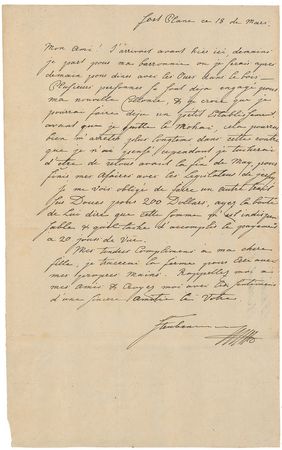 Fort Plane ce 18 de Mars.
Mon Ami! J'arrivais avant hier ici demain
je part pour ma barronnie ou je serais apres
demain pour diner avec les Ours dans le bois
Plusieurs personnes se sont deja engagé pour
ma nouvelle & je crois que je
pourrai faire deja un petit Etablissement
avant que je quitte le Mohak. cela pourra
bien m'arreter plus longtems dans cette contree
que je n'ai pensé cependant je tacherai
d'etre de retour avant la fin de May, pour
finir mes Affaires avec les
je me vois obligé de faire un autre
sur Doues pour 200 Dollars, ayez la bonté
de lui dire que cette somme m'est indispen
sable & qu'il tache d'accomplir le payement
a 20 jours de Vue.
Mes tendres Complimens a ma chere
fille, je la ferme pour avec
mes propres Mains. Rappellez moi a
mes Amis & croyez moi avec les sentimens
d'une sincere Amitié le Votre